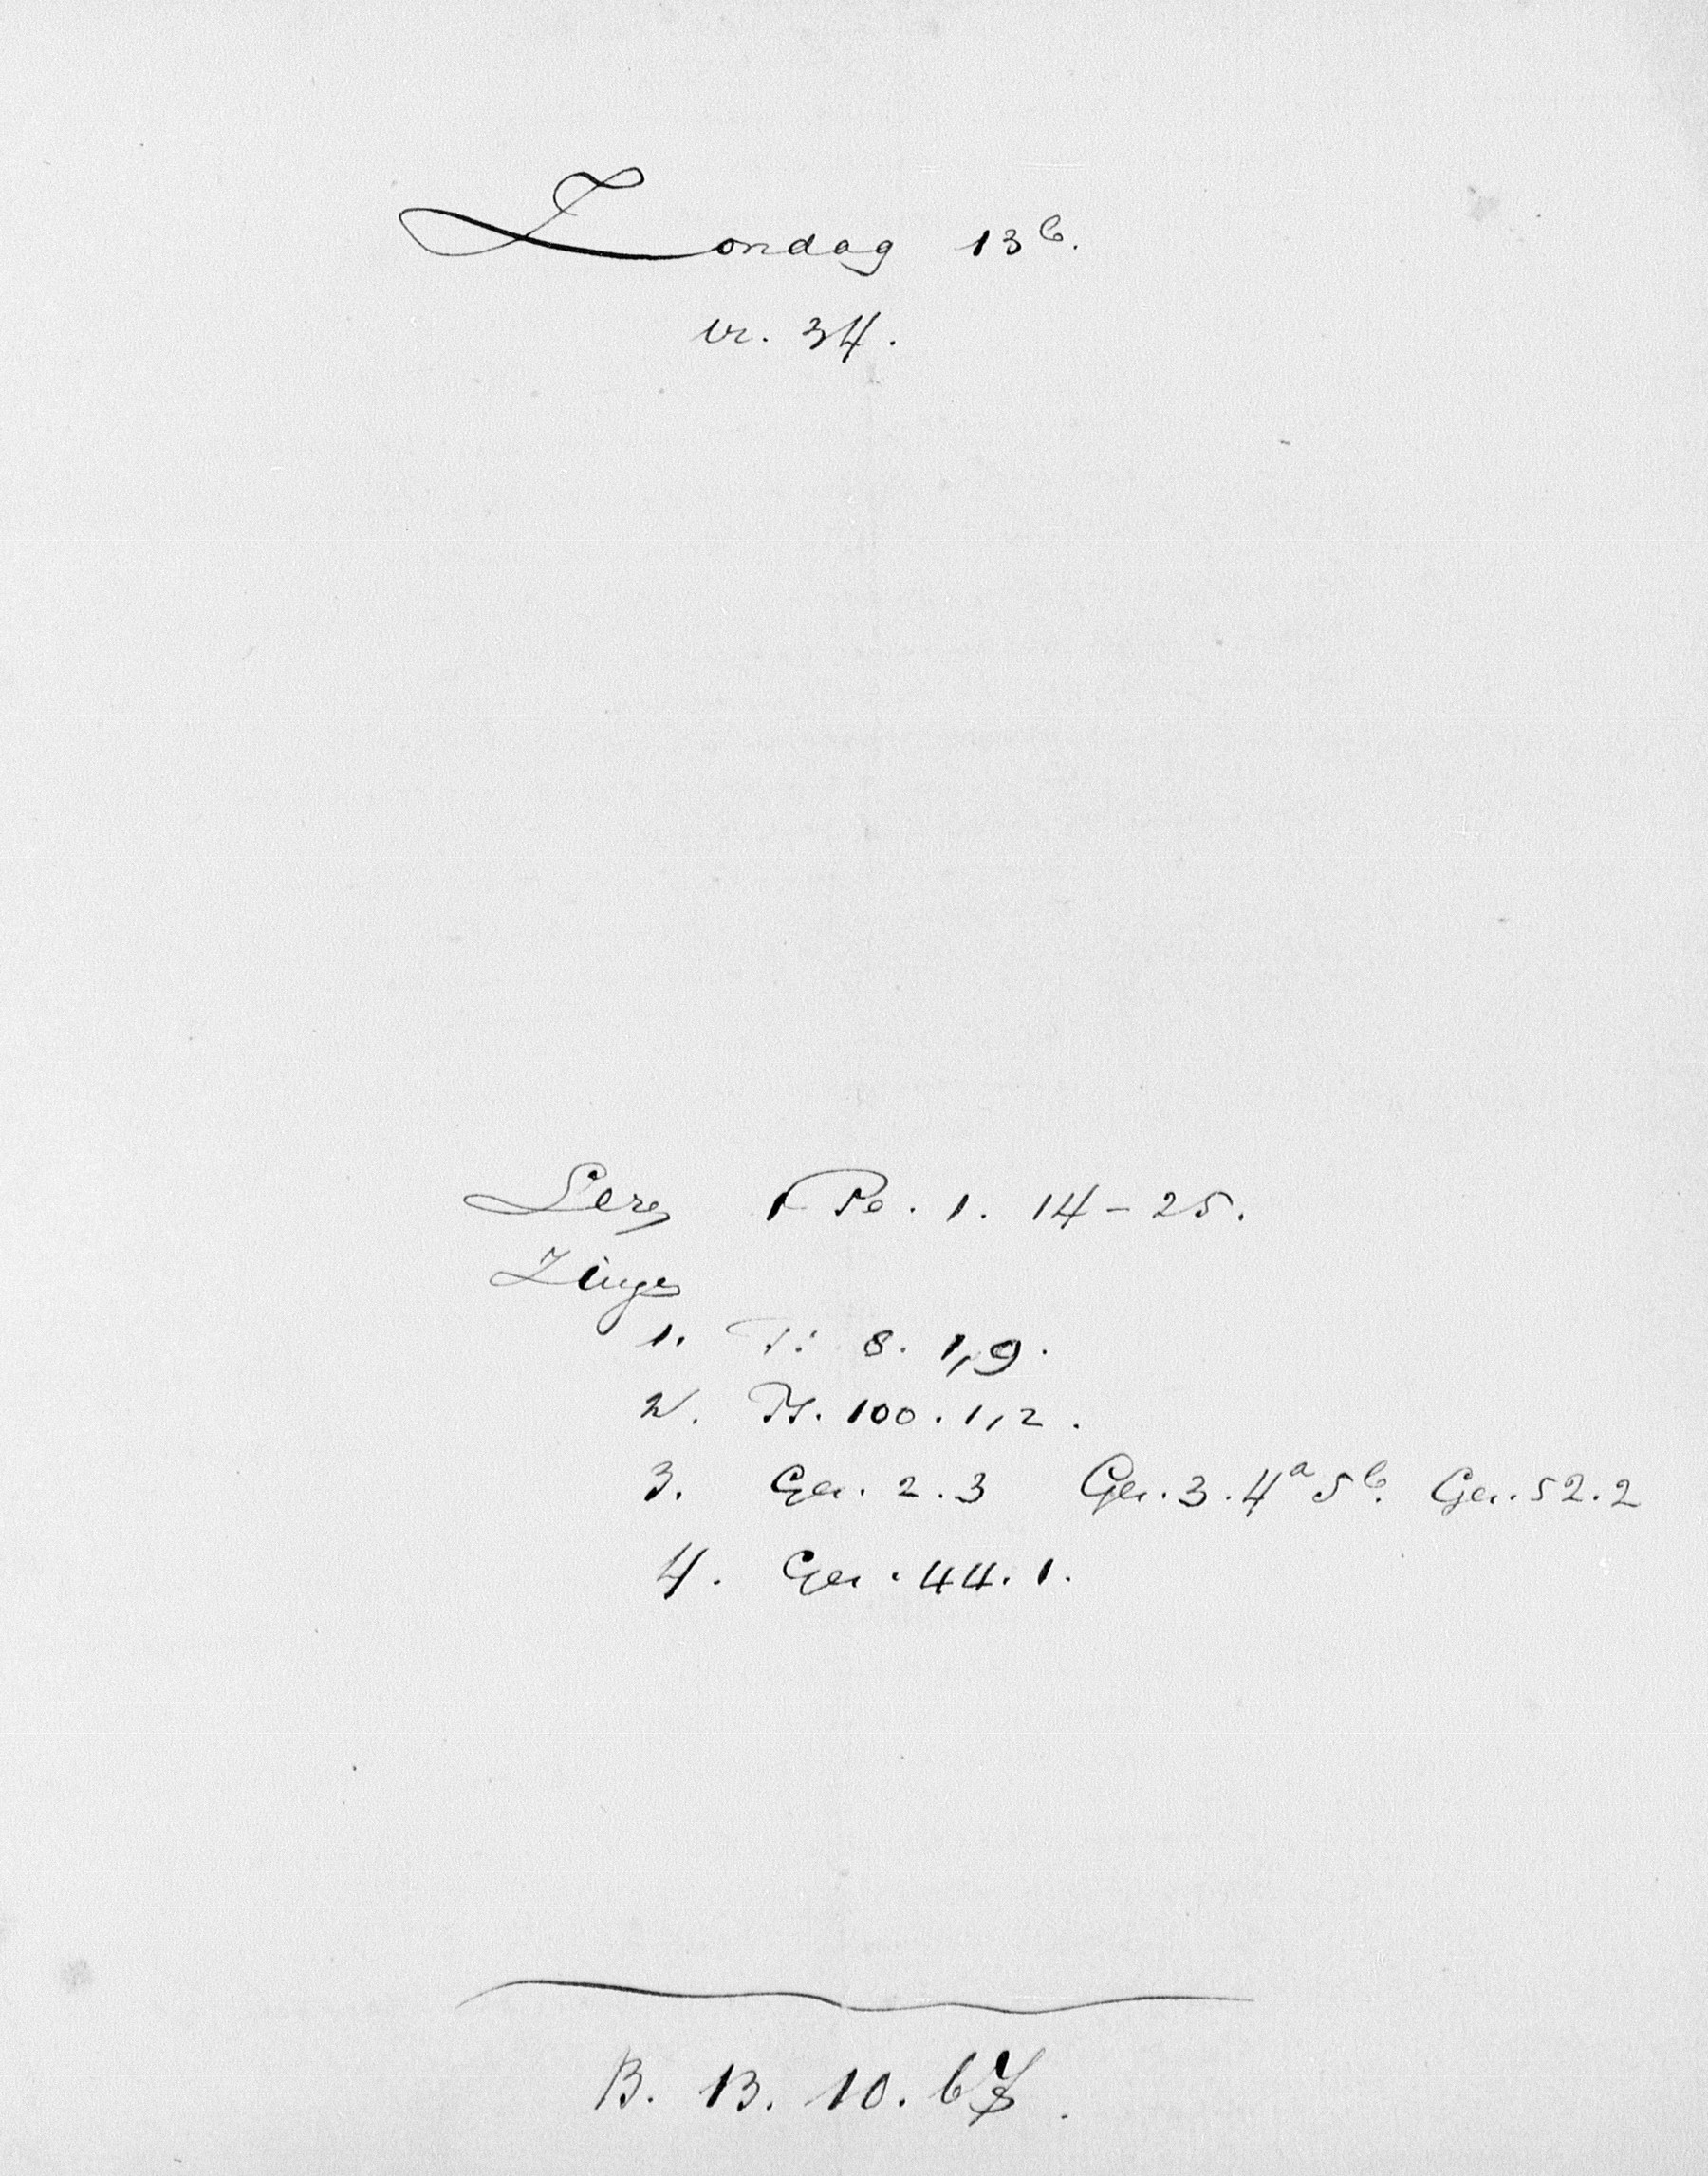 Zondag 13b.
vr. 34.
Lezen 1 Pe. 1. 14-25.
Zingen
1. Ps. 8. 1,9.
2. Ps. 100. 1,2.
3. Gez. 2.3 Gez. 3.4a 5b. Gez. 52.2
4. Gez. 44.1.
B. 13. 10. 67.